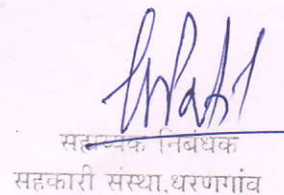 सहाय्यक निबंधक
सहकारी संस्था,धरणगांव